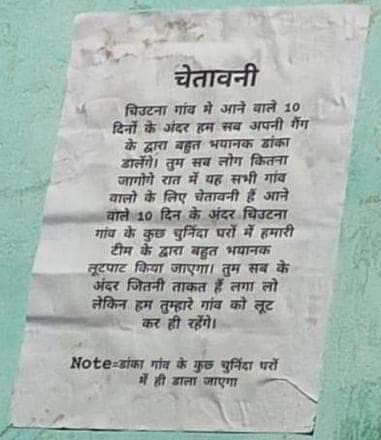 चेतावनी
चिउटना गांव मे आने वाले 10
दिनों के अंदर हम सब अपनी गैंग
के द्वारा बहुत भयानक डांका
डालेंगे। तुम सब लोग कितना
जागोगे रात में यह सभी गांव
वालो के लिए चेतावनी हैं आने
वाले 10 दिन के अंदर चिउटना
गांव के कुछ चुनिंदा घरों में हमारी
टीम के द्वारा बहुत भयानक
लूटपाट किया जाएगा। तुम सब के
अंदर जितनी ताकत हैं लगा लो
लेकिन हम तुम्हारे गांव को लूट
कर ही रहेंगे।
Note=डांका गांव के कुछ चुनिंदा घरों
में ही डाला जाएगा